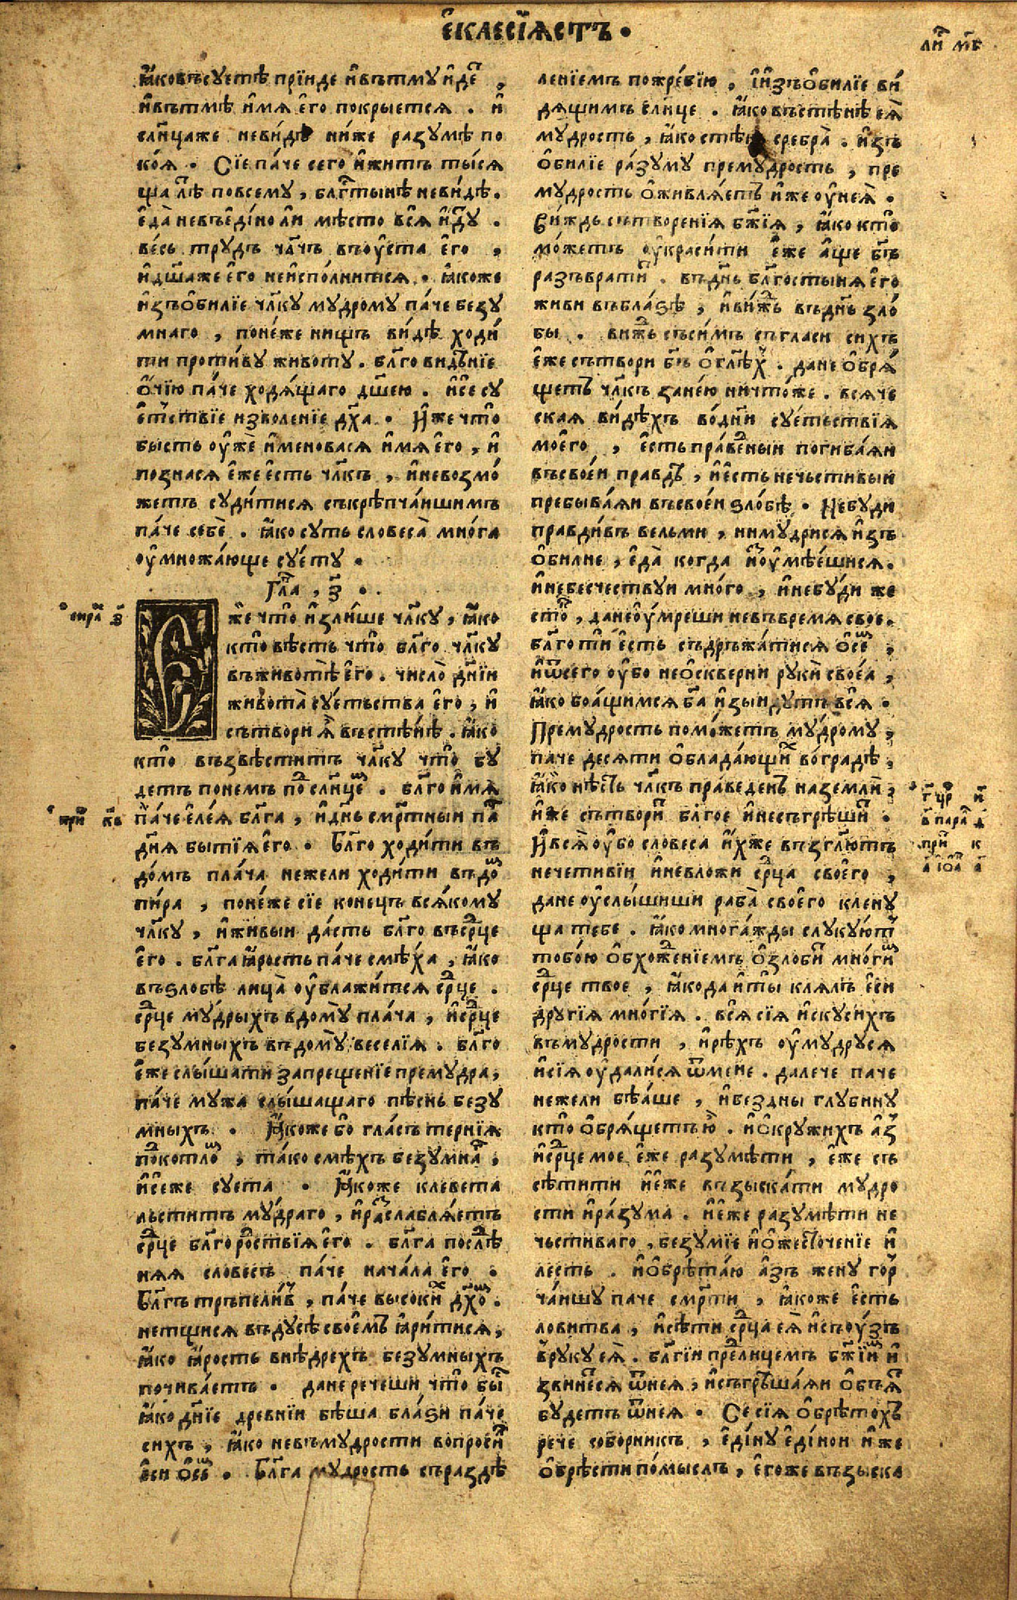 Е҆КЛЕСЇꙖСТЪ.
ꙗ҆ковъсꙋетѣ прїиде и҆вътмꙋ и҆де҆тъ,
и҆вътмѣ и҆мѧ е҆го покрыетсѧ. и҆
сл҃нцаже невидѣ ниже разꙋмѣ по
коѧ. Сїе па́че сего̀ и҆житъ ты́сѧ
ща лѣ повсемꙋ, бл҃гты́нѣ неви́дѣ.
е҆да̀ невъе҆ди́но ли мѣсто всѧ̀ и҆дꙋ.
весь трꙋдъ чл҃чь въоу҆ста е҆го̀,
и҆дш҃аже е҆го неи҆спо́лнитсѧ. ꙗ҆коже
и҆зъо҆билїе чл҃кꙋ мꙋдромꙋ па́че безꙋ
мнаго, поне́же нищъ ви́дѣ ходи́
ти проти́вꙋ животꙋ. бл҃го ви́дѣнїе
о҆чїю па́че ходѧ́щаго дш҃ею. и҆се сꙋ
е҆тствїе изволенїе дх҃а. И҆же что̀
бысть оу҆жѐ и҆меновасѧ и҆мѧ е҆го̀, и҆
познасѧ е҆же е҆сть чл҃къ, и҆невозмо́
жетъ сꙋди́тисѧ съкрѣпча́ишимъ
па́че себѐ. ꙗ҆ко сꙋть словеса̀ мно́га
оу҆множа́юще сꙋетꙋ.
Гла, з҃.
сира з҃
Е҆же что̀ и҆зли́ше чл҃кꙋ, ꙗ҆ко
кто̀ вѣсть что̀ бл҃го чл҃кꙋ
въживотѣ е҆го. число̀ дн҃їи
живота̀ сꙋетьства е҆го, и҆
сътвори ꙗ҆ въстѣнѣ. ꙗ҆ко
кто̀ възвѣститъ чл҃кꙋ что̀ бꙋ
детъ понемъ под сл҃нцем. бл҃го и҆мѧ
при кв
па́че е҆ле́ѧ бл҃га, и҆дн҃ь смр҃тныи па
днѧ бытїѧ е҆го. Бл҃го ходи́ти въ
до́мъ пла́ча нежели ходи́ти въдом
пи́ра, поне́же сїе конецъ всѧ́комꙋ
чл҃кꙋ, и҆живыи да́сть бл҃го въсрⷣце
е҆го. бл҃га ꙗ҆рость па́че смѣ́ха, ꙗ҆ко
въѕлобѣ лица̀ оу҆блажи́тсѧ срⷣце.
срⷣце мꙋ́дрыхъ вдомꙋ̀ пла́ча, и҆срⷣце
безꙋмныхъ въдомꙋ̀ веселїѧ. бл҃го
е҆же слы́шати запрещенїе премꙋдра,
па́че мꙋ́жа слы́шащаго пѣснь безꙋ
мныхъ. Ꙗ҆коже бо гла́съ тернїѧ
подкотлом, та́ко смѣхъ безꙋмных,
и҆сеже сꙋета. Ꙗ҆коже клевета
льститъ мꙋ́драго, и҆разслаблѧ́етъ
срⷣце бл҃городствїѧ е҆го. бл҃га послѣ
нѧѧ словесъ па́че нача́ла е҆го.
Бл҃гъ тръпели́въ, па́че высоких дх҃ом.
нетщисѧ въдꙋсѣ свое́мъ ꙗ҆ри́тисѧ,
ꙗ҆ко ꙗ҆рость внѣдрехъ безꙋмныхъ
почива́етъ. дане речеши что̀ бы
ꙗ҆ко дн҃їе древнїи бѣша бла́ѕи па́че
сихъ, ꙗ҆ко невъмꙋдрости вопроси
е҆си о҆сем. Бл҃га мꙋ́дрость съраздѣ
ли мв
ленїемъ пожре́бїю, и҆и҆зъо҆билїе ви́
дѧщимъ слн҃це. ꙗ҆ко въстѣнѣ еѧ̀
мꙋдрость, ꙗ҆ко стѣнь сребра̀. и҆зъ
о҆билїе ра́зꙋмꙋ премꙋдрость, пре
мꙋдрость о҆живлѧ́етъ и҆же оу҆неѧ̀.
Ви́ждь сътворенїѧ бж҃їѧ, ꙗ҆ко кто̀
мо́жетъ оу҆краси́ти е҆же а҆ще бг҃ъ
разъврати. въдн҃ь бл҃гостынѧ е҆го
живи въбла́ѕѣ, и҆вижь въдн҃ь зло́
бы. вижь съсимъ съгласи сихъ
е҆же сътвори бг҃ъ о҆глѣх. дане о҆брѧ́
щетъ чл҃къ занею ничто́же. всѧ́че
скаѧ ви́дѣхъ во́дни сꙋе́тствїѧ
моего̀, е҆сть пра́ведныи погиба́ѧи
въсвое́и правдѣ, и҆есть нечьстивыи
пребыва́ѧи въсвое́и ѕло́бѣ. Небꙋди
правди́въ вельми, нимꙋдрисѧ и҆зъ
о҆билие, е҆да̀ когда и҆зоу҆мѣе́шисѧ.
и҆небесчествꙋи мно́го, и҆небꙋ́ди же
сто, данеоу҆мреши невъвремѧ свое.
бл҃го ти е҆сть съдръжа́тисѧ о҆сем,
и҆ѿсего оу҆бо нео҆скверни рꙋкѝ своеѧ̀,
ꙗ҆ко боѧ́щимсѧ бг҃а и҆зыидꙋтъ всѧ̀.
Премꙋдрость помо́жетъ мꙋ́дромꙋ,
па́че десѧти о҆блада́ющих во́градѣ,
г҃ цр н҃
ꙗ҆ко нѣсть чл҃къ пра́веденъ наземлѝ,
в҃ пара ѕ
и҆же сътвори бл҃гое и҆несъгрѣши.
при к
И҆всѧ̀ оу҆бо словеса и҆хже възгл҃ютъ
а҃ іѡа а҃
нечетивїи и҆невложи срⷣца своего̀,
дане оу҆слы́шиши раба̀ своего кленꙋ
ща тебе. ꙗ҆ко многа́жды слꙋкꙋют
тобо́ю о҆бхоженїемъ о҆злобит многим
срⷣце твое, ꙗ҆кода и҆ты̀ клѧлъ е҆си
дрꙋгїѧ мно́гїѧ. всѧ̀ сїѧ и҆скꙋсихъ
въмꙋдрости, и҆рѣхъ оу҆мꙋдрꙋсѧ
и҆сїѧ оу҆дали́сѧ ѿмене. далече па́че
нежели бѣ́аше, и҆бездны глꙋбинꙋ
кто̀ о҆брѧ́щетъю̀. и҆о҆крꙋжихъ а҆з
и҆срⷣце мое е҆же разꙋмѣти, е҆же съ
сѣтити и҆е҆же възыска́ти мꙋдро
сти и҆ра́зꙋма. и҆е҆же разꙋмѣти не
чьстиваго, безꙋмїе и҆о҆жесточенїе и҆
лесть. и҆о҆брѣта́ю а҆зъ женꙋ̀ гор
ча́ишꙋ паче смр҃ти, ꙗ҆коже е҆сть
лови́тва, и҆сѣти срⷣца еѧ̀ и҆съоу҆зъ
врꙋкꙋ еѧ̀. бл҃гїи предлицемъ бж҃їим и҆
звинѐсѧ ѿнеѧ, и҆съгрѣша́ѧи о҆бъѧт
бꙋдетъ ѿнеѧ. Се сїѧ о҆брѣтохъ
рече соборникъ, е҆ди́нꙋ е҆ди́нои и҆же
о҆брѣсти помыслъ, е҆гоже възыска